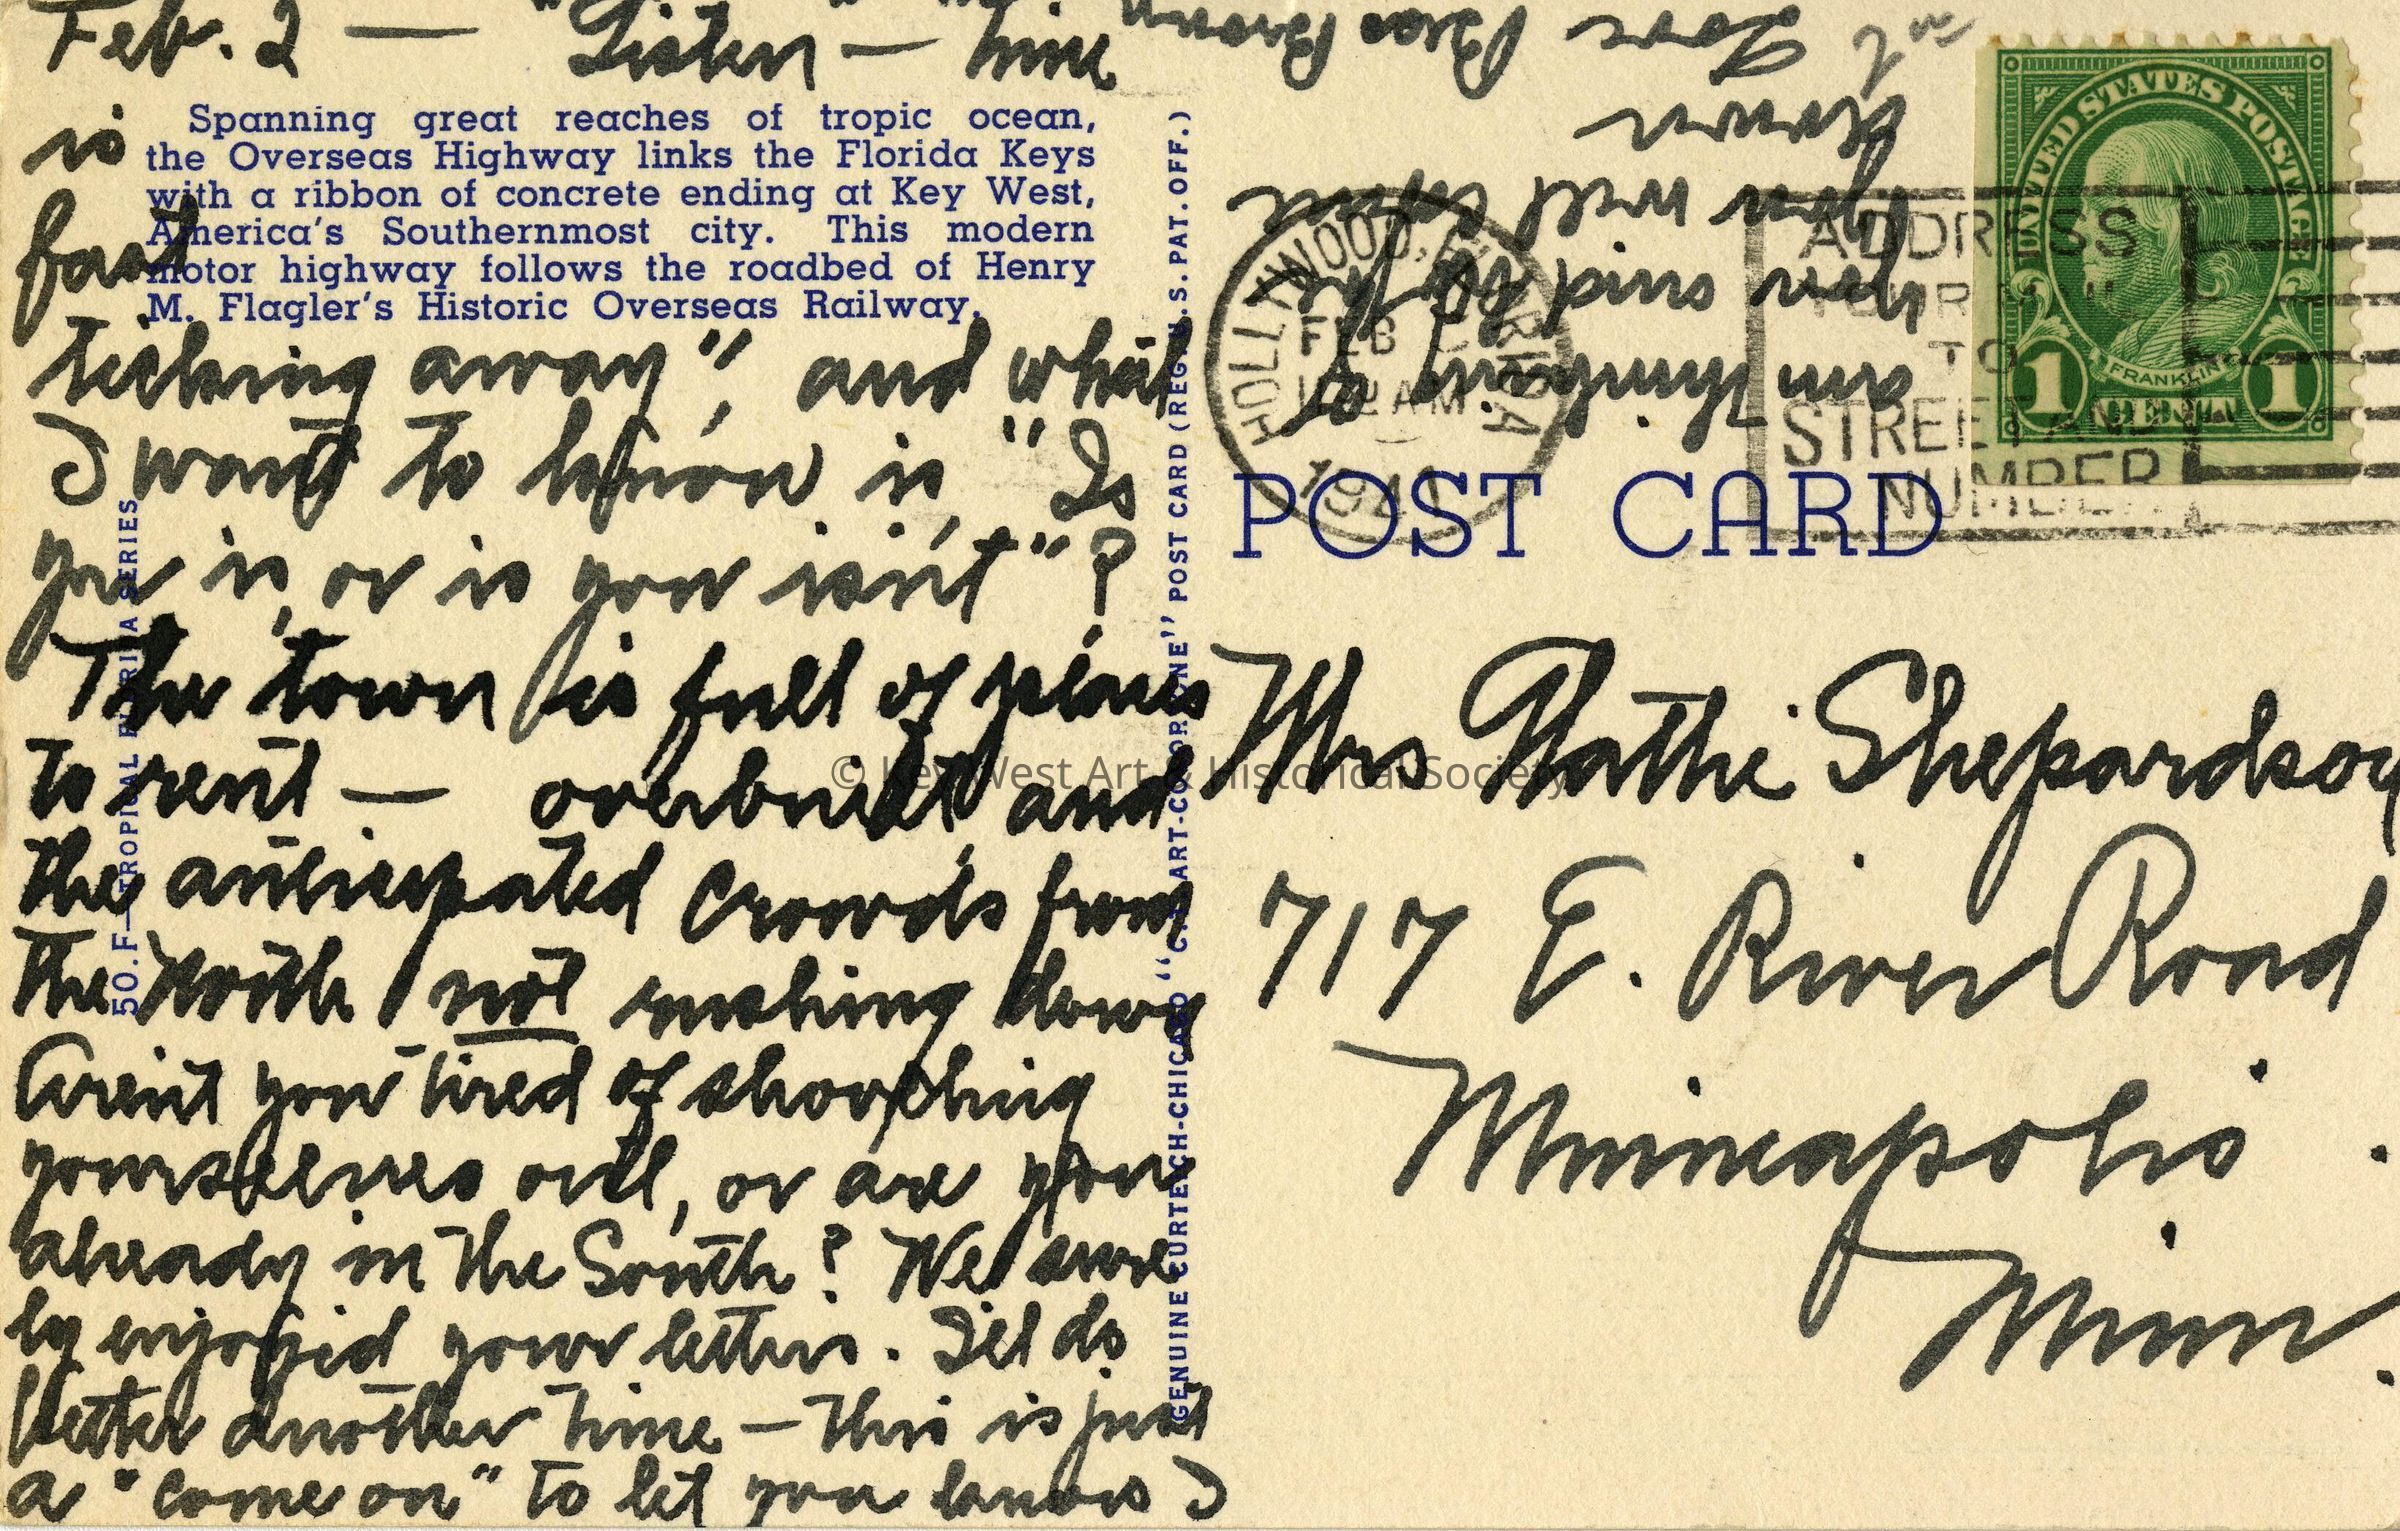 Feb. 2 — "Listen — time
is
fast
ticking away", and what
I want to know is "Is
you is, or is you isn't"?
The town is full of places
to rent — overbuilt and
the anticipated crowds from
the North not making down
Aren't you tired of
yourselves out, or are you
already in the South? We sure
ly enjoyed your letters. I'll do
better another time — this is just
a "come on" to let you know I
am thinking of
you and hope
you will come
down
Love
Spanning great reaches of tropic ocean,
the Overseas Highway links the Florida Keys
with a ribbon of concrete ending at Key West,
America's Southernmost city. This modern
motor highway follows the roadbed of Henry
M. Flagler's Historic Overseas Railway.
50.F—TROPICAL FLORIDA SERIES
GENUINE CURTEICH-CHICAGO "C.T. ART-COLORTONE" POST CARD (REG. U.S. PAT. OFF.)
POST CARD
HOLLYWOOD, FLORIDA
FEB
AM
ADDRESS
TO
STREET AND
NUMBER
UNITED STATES POSTAGE
FRANKLIN
1 CENT 1
Mrs Shepardson
717 E. River Road
Minneapolis.
Minn.
© Key West Art & Historical Society